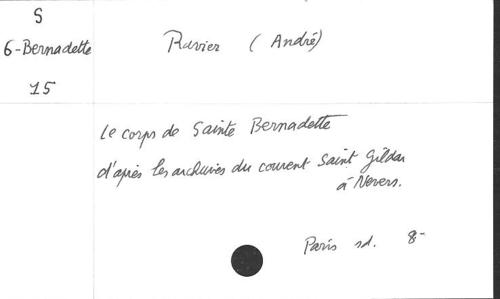 S
6-Bernadette
15
Ravier (André)
Le corps de Sainte Bernadette
d'après les archives du couvent Saint Gildas
à Nevers.
Paris sd. 8-